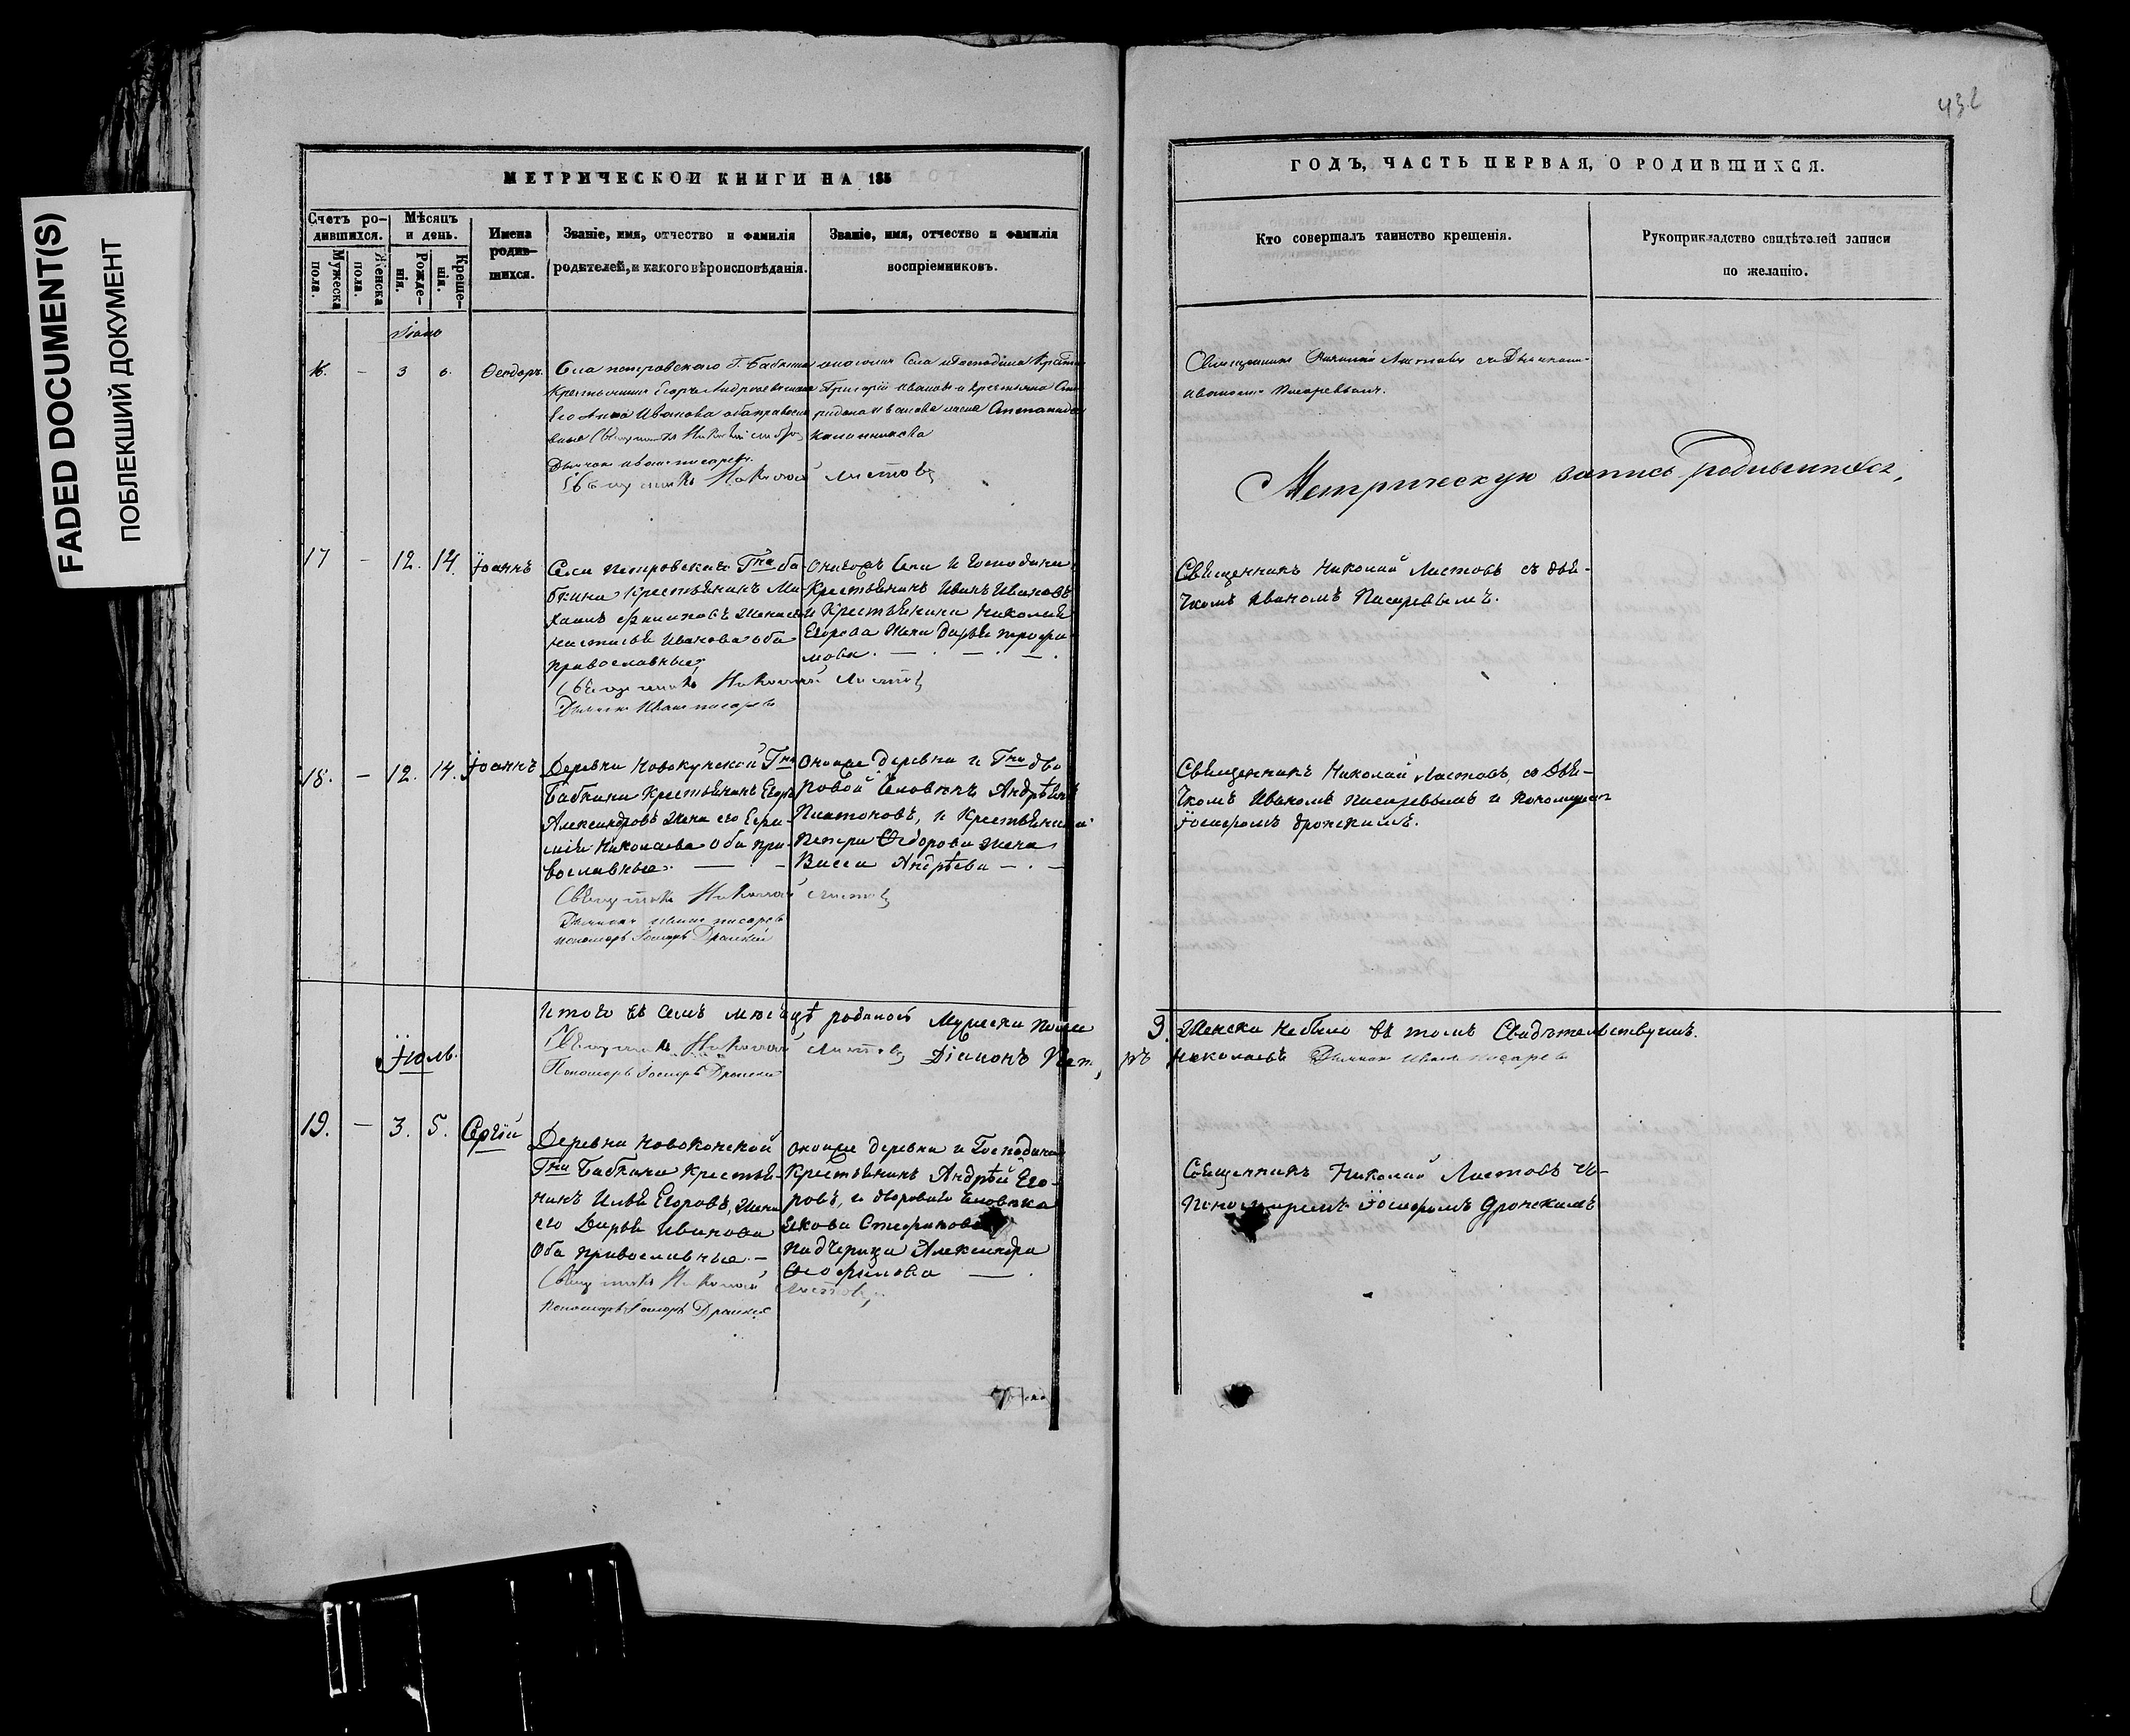 FADED DOCUMENT(S)
ПОБЛЕКШИЙ ДОКУМЕНТ
432
МЕТРИЧЕСКОЙ КНИГИ НА 185
Счетъ ро-
дившихся.
Мужеска
пола.
Женска
пола.
Мѣсяцъ
и день.
Рожде-
нія.
Креще-
нія.
Имена
родив-
шихся.
Званіе, имя, отчество и фамилія
родителей, и какого вѣроисповѣданія.
Званіе, имя, отчество и фамилія
воспріемниковъ.
16. – 3 6. Феодоръ
Села петровскаго Г. Бабкина
Крестьянинъ Егоръ Андреевъ жена
Его Анна Иванова оба православ
ные Священникъ Николай Листовъ
Дьячокъ Иванъ писаревъ
Григорій Ивановъ и крестьянка
Священникъ Николай Листовъ
17 – 12. 14. Іоаннъ
Села Петровскаго Гна ба
бкина крестьянинъ Ми
настасья Иванова оба
православные
Онагожъ села и Господина
Крестьянинъ Иванъ Ивановъ
и Крестьянина Николая
Егорова жена Дарья трофи
мова. – . – . – .
Священникъ Николай Листовъ
Дьячокъ Иванъ писаревъ
18. – 12. 14. Іоаннъ
Деревни Новокунской Гна
Бабкина Крестьянинъ Егоръ
Александровъ жена его Евфи-
мія Николаева оба пра-
вославные. –
Оноиже деревни и Гна дво
ровой человекъ Андрѣй
Платоновъ, и Крестьянина
Петра Ѳедорова жена
Васса Андрѣева – . –
Священникъ Николай Листовъ
Дьячокъ Иванъ писаревъ
пономарь Іосифъ Дронскій
Итого въ семъ мѣсяцѣ родилось Мужеска пола
Священникъ Николай Листовъ Діаконъ Пет
Пономарь Іосифъ Дронскій
Іюль.
19. – 3. 5. Сергій
Деревни Новоконской
Гна Бабкина Крестья-
нинъ Илья Егоровъ, жена
его Дарья Иванова
Оба православные. –
Оноиже деревни и Господина
Крестьянинъ Андрѣй Его-
ровъ, и двороваго человека
Якова Стефанова
падчерица Александра
Ѳеофилова – .
Священникъ Николай Листовъ
Пономарь Іосифъ Дронскій
ГОДЪ, ЧАСТЬ ПЕРВАЯ, О РОДИВШИХСЯ.
Кто совершалъ таинство крещенія.
Рукоприкладство свидѣтелей записи
по желанію.
Священникъ Николай Листовъ съ Дьячкомъ
Иваномъ Писаревымъ.
Метрическую запись родившихся,
Священникъ Николай Листовъ съ дья-
чкомъ Иваномъ Писаревымъ.
Священникъ Николай Листовъ, съ Дья-
чкомъ Иваномъ Писаревымъ и Пономаремъ
Іосифомъ Дронскимъ.
3. Женска небыло въ томъ Свидѣтельствуемъ.
ръ Николаевъ Дьячокъ Иванъ писаревъ
Священникъ Николай Листовъ съ
Пономаремъ Іосифомъ Дронскимъ